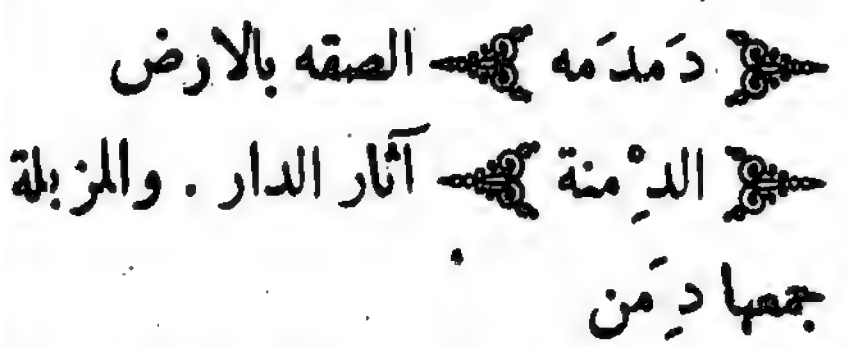 دَمدَمه الصقه بالارض
الدِمْنة آثار الدار . والمزبلة
جمعها دِمَن